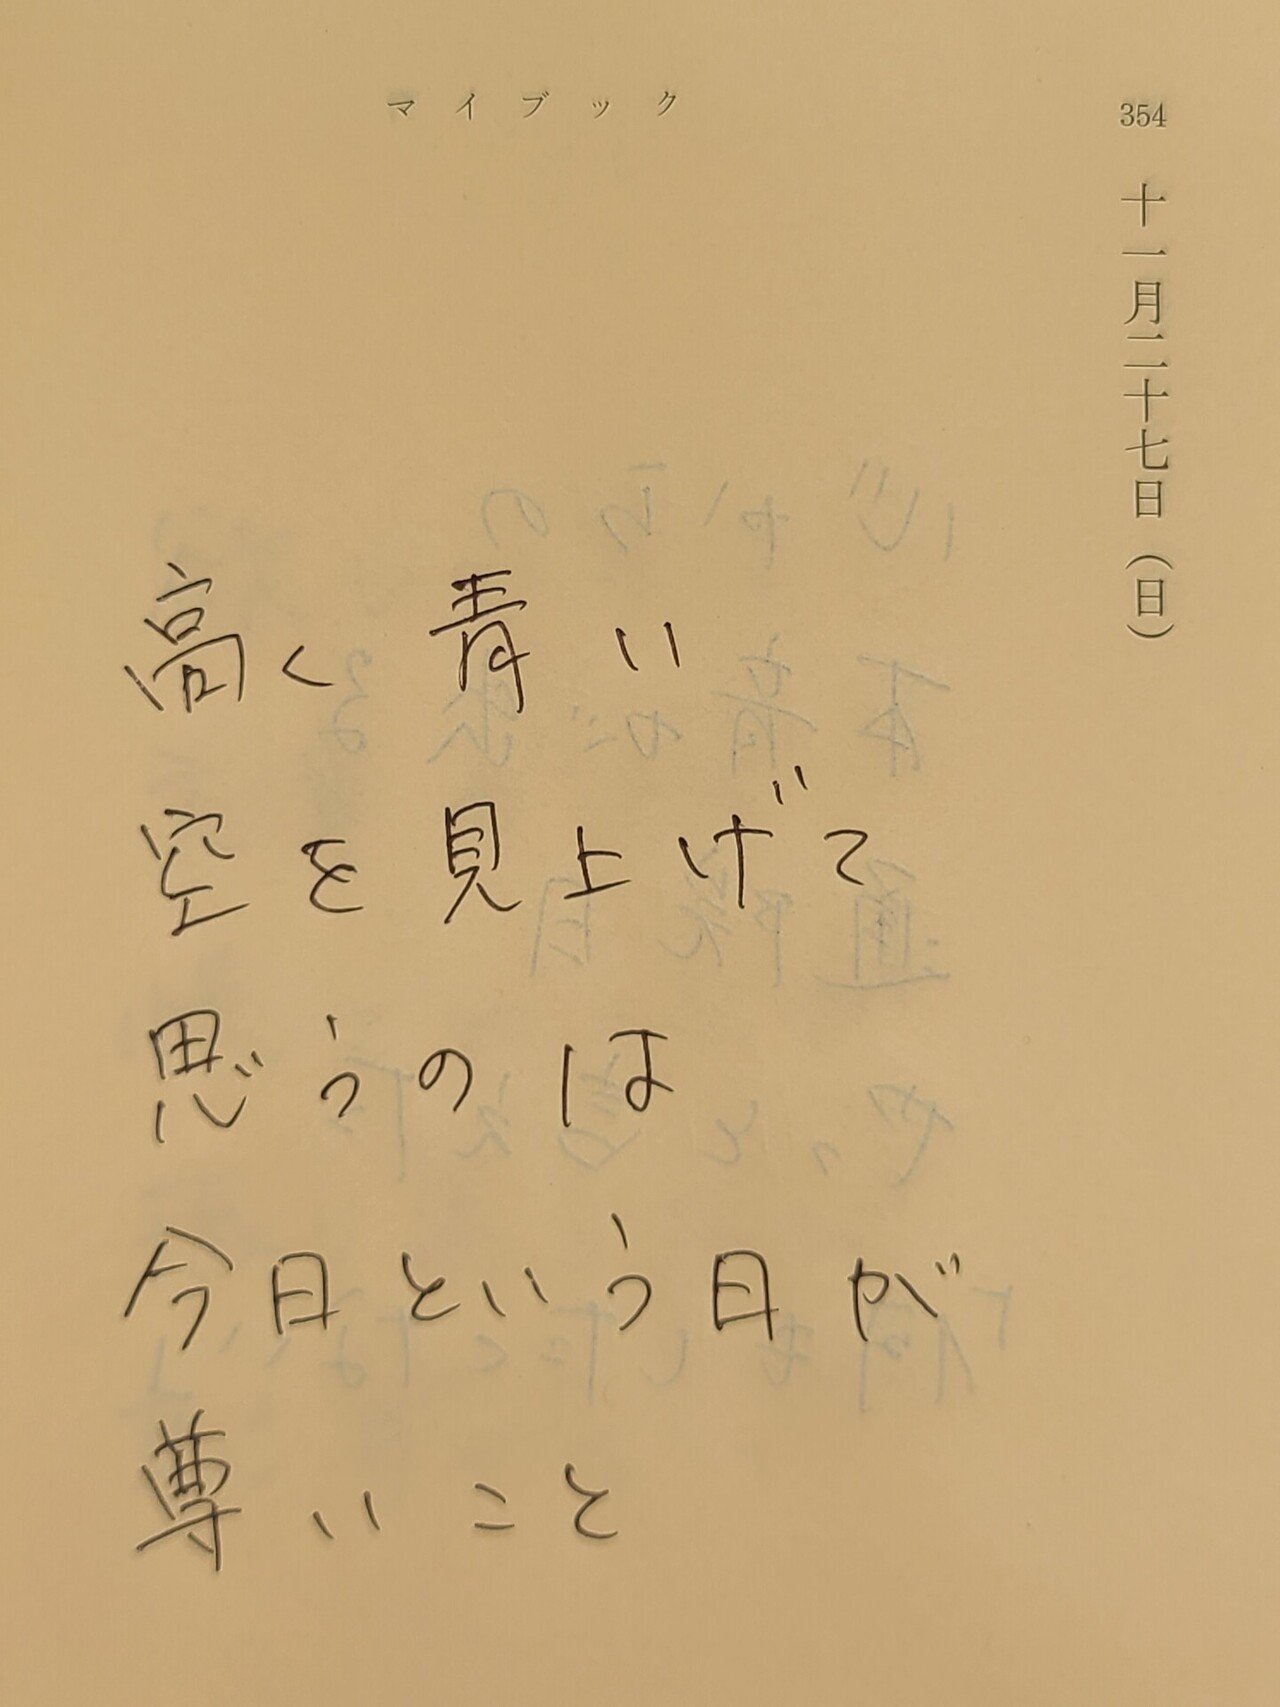 マイブック
354
十一月二十七日（日）
高く青い
空を見上げて
思うのは
今日という日が
尊いこと